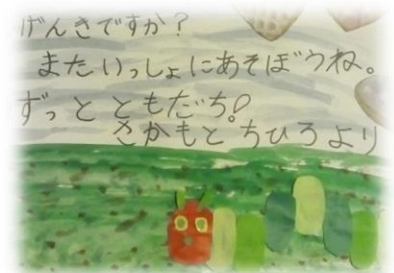 げんきですか？
またいっしょにあそぼうね。
ずっとともだち!
さかもと。ちひろより